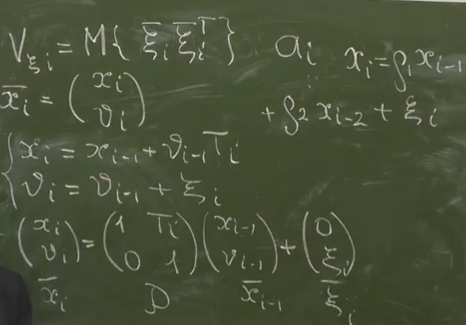 V_{ξ_i} = M{ ξ̄_i ξ̄_i^T }   a_i   x_i = ρ_1 x_{i-1}
x̄_i = (x_i ϑ_i)   + ρ_2 x_{i-2} + ξ_i
{ x_i = x_{i-1} + ϑ_{i-1} T_i
ϑ_i = ϑ_{i-1} + ξ_i
(x_i v_i) = (1 T_i 0 1) (x_{i-1} v_{i-1}) + (0 ξ_i)
x̄_i   D   x̄_{i-1}   ξ̄_i